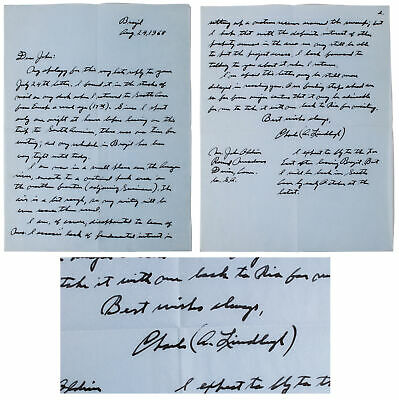 Brazil
Aug. 29, 1968
Dear John:
My apology for this very late reply to your
July 24th letter. I found it in the stacks of
mail on my desk when I returned to
from Europe a week ago (17th). Since I spent
only one night at home before leaving on this
trip to South America, there was no time for
writing, and my schedule in Brazil has been
very tight until today.
I am now in a small plane on the Amazon
river, enroute to a national park area on
the northern frontier (adjoining Suriname). The
air is a bit rough, so my writing will be
even worse than usual.
I am, of course, disappointed to learn of
lack of fundamental interest in
2.
setting up a nature museum around the swamp; but
I hope that with the definite interest of other
property owners in the area we may still be able
to put the project across. I look forward to
talking to you about it when I return.
I'm afraid this letter may be still more
delayed in reaching you. I am landing stops
so far from major that it may be advisable
for me to take it with me back to Rio for mailing.
Best wishes always,
Charles (A. Lindbergh)
Mr. John
Road
Darien, Conn.
U.S.A.
I expect to fly to the Far
East after leaving Brazil. But
I will be back in
Conn. by early October at the
latest.
take it with me back to Rio for
Best wishes always,
Charles (A. Lindbergh)
I expect to fly to